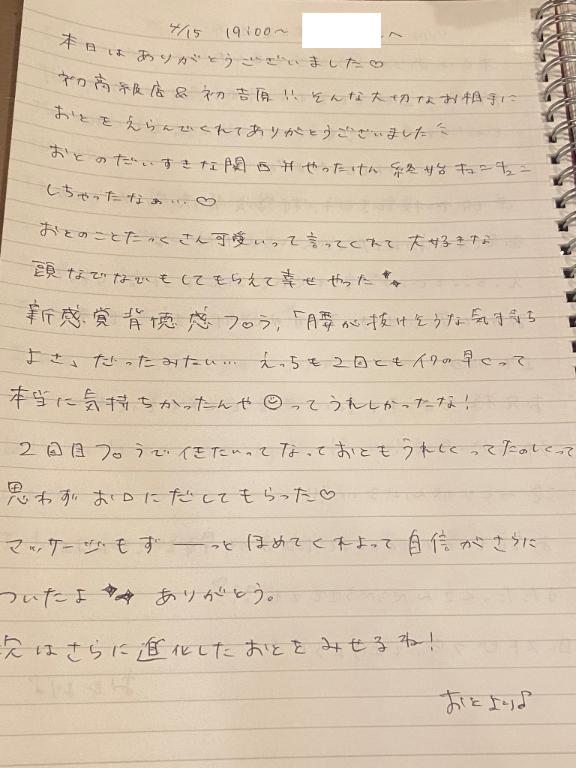 4/15 19:00〜 へ
本日はありがとうございました♡
初高級店&初吉原!! そんな大切なお相手に
おとをえらんでくれてありがとうございました
おとのだいすきな関西弁やったけん終始キュンキュン
しちゃったなぁ…♡
おとのことたっくさん可愛いって言ってくれて大好きな
頭なでなでもしてもらえて幸せやった
新感覚背徳感フロう、「腰が抜けそうな気持ち
よさ」だったみたい… えっちも2回ともイクの早くって
本当に気持ちかったんや☺ってうれしかったな!
2回目フロうでイきたいってなっておともうれしくってたのしくって
思わずお口にだしてもらった♡
マッサージもずーーっとほめてくれよって自信がさらに
ついたよ ありがとう。
次はさらに進化したおとをみせるね!
おとより♪